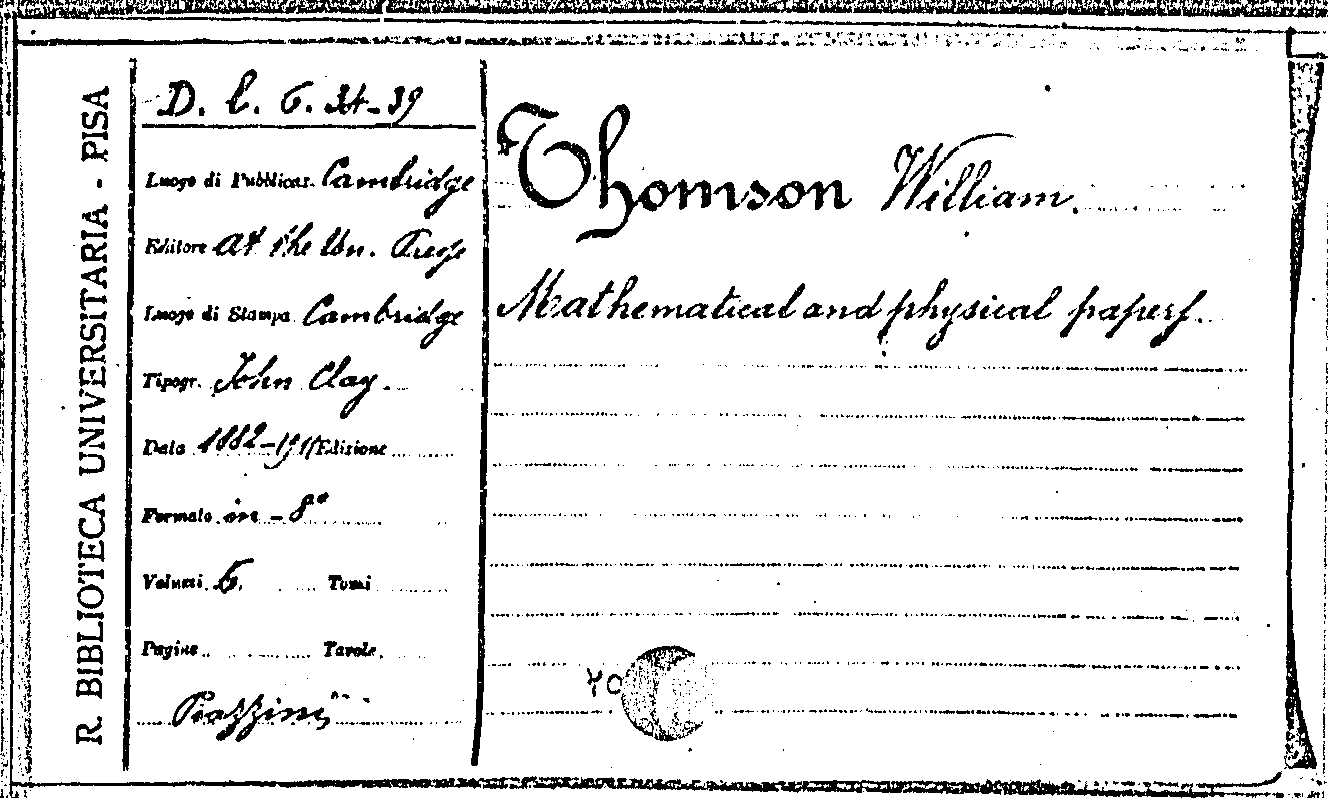 R. BIBLIOTECA UNIVERSITARIA - PISA
D. l. 6. 34-39
Luogo di Pubblicaz. Cambridge
Editore at the Un. Press
Luogo di Stampa Cambridge
Tipogr. John Clay.
Data 1882-1911 Edizione
Formato in - 8°
Volumi 6. Tomi
Pagine Tavole
Piazzini
Thomson William.
Mathematical and physical papers.